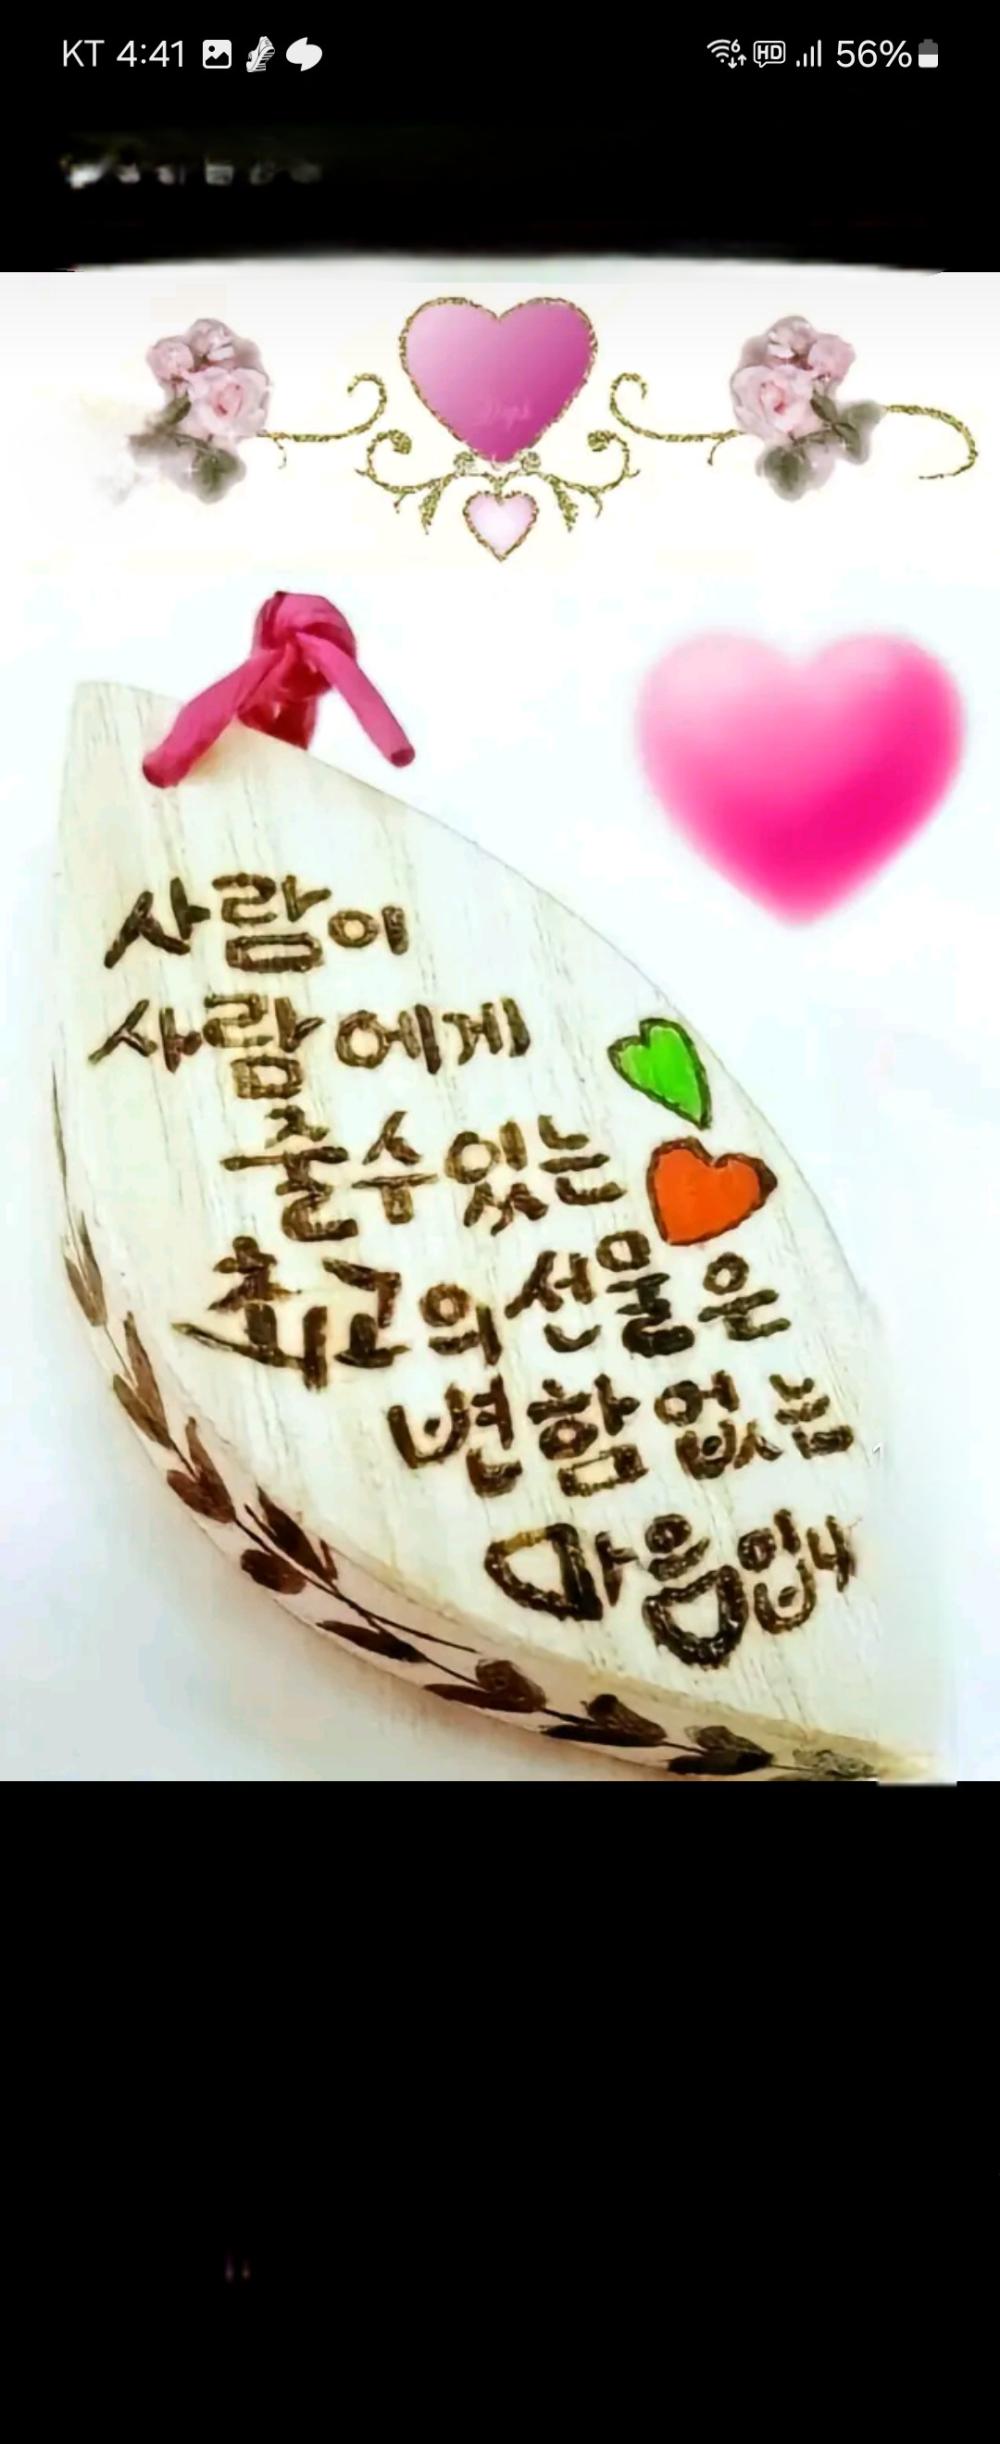 KT 4:41
HD
56%
사람이
사람에게
줄수있는
최고의 선물은
변함 없는
마음입니